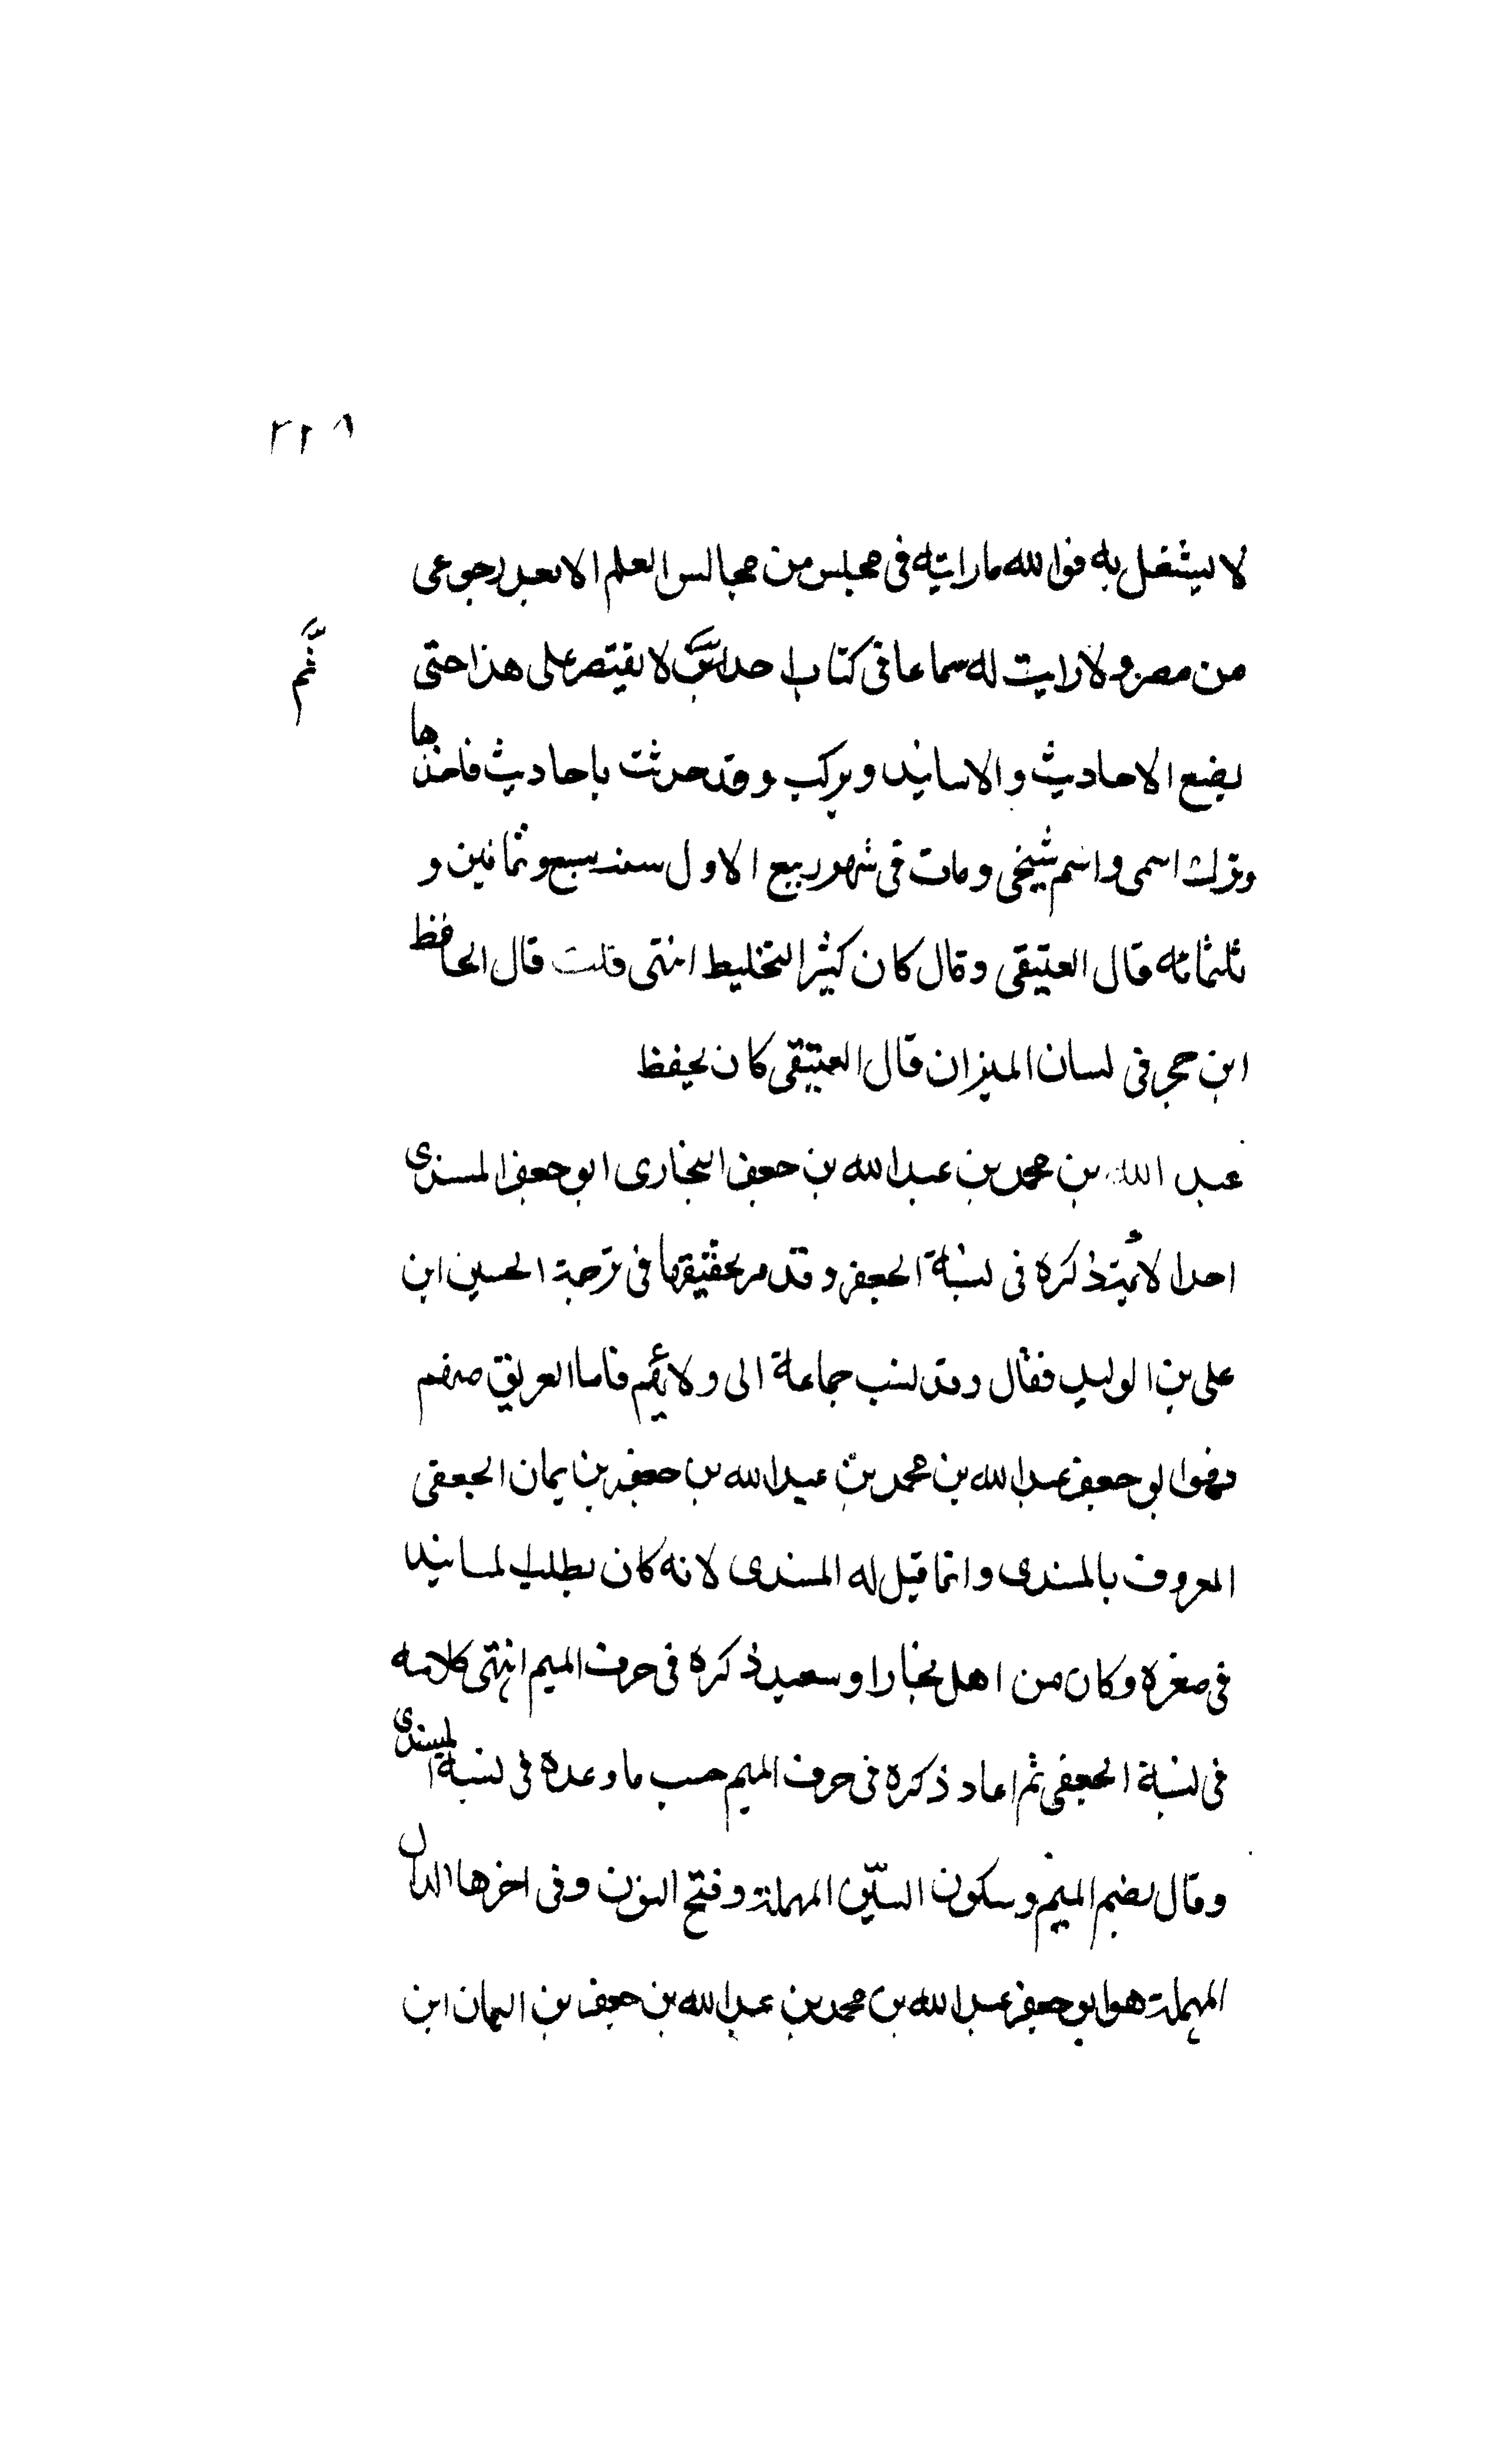 ٢١٨
لا يشتغل به فوالله ما رايته في مجلس من مجالس العلم الا بعد رجوعى
من مصر ولا رايت له سماعا في كتاب احد لا يقتصر على هذا حتى
ثم
يضع الاحاديث والاسانيد ويركب وقد حدثت باحاديث فاخذها
وترك اسمى واسم شيخى ومات في شهر ربيع الاول سنه سبع وثمانين و
ثلثمائه قال العتيقى وقال كان كثير التخليط انتهى قلت قال الحافظ
ابن حجر في لسان الميزان قال العتيقى كان يحفظ
عبد الله بن محمد بن عبد الله بن جعفر البخارى ابو جعفر المسندى
احد الائمة ذكره فى نسبة الجعفى وقد مر تحقيقها فى ترجمة الحسين ابن
على بن الوليد فقال وقد نسب جماعة الى ولائهم فاما العريق منهم
فهو ابو جعفر عبد الله بن محمد بن عبد الله بن جعفر بن يمان الجعفى
المعروف بالمسندى وانما قيل له المسندى لانه كان يطلب المسانيد
فى صغره وكان من اهل بخارا وسعيد ذكره فى حرف الميم انتهى كلامه
فى نسبة الجعفى ثم اعاد ذكره فى حرف الميم حسب ما وعده فى نسبة المسندى
وقال بضم الميم وسكون السين المهملة وفتح النون وفى اخرها الدال
المهملة هو ابو جعفر عبد الله بن محمد بن عبد الله بن جعفر بن اليمان ابن